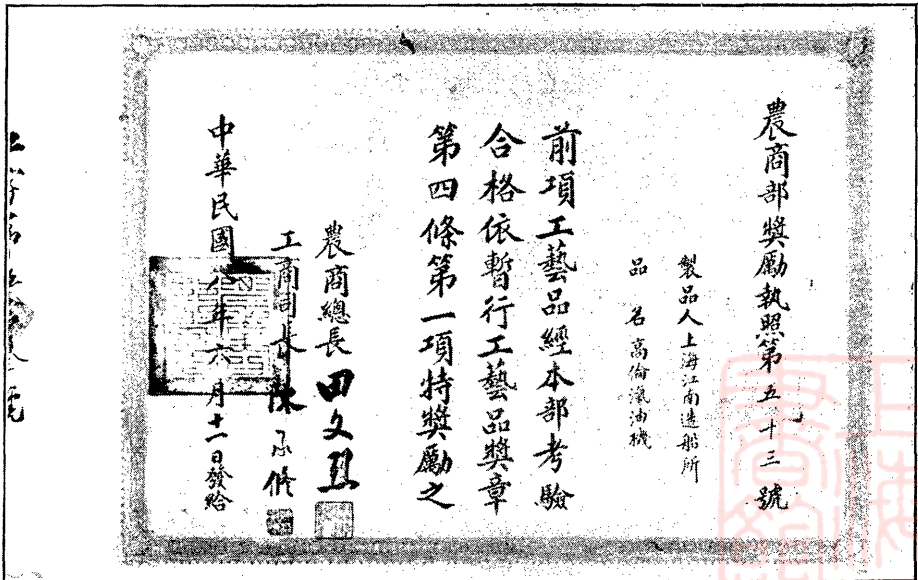 農商部獎勵執照第五十三號
製品人上海江南造船所
品 名高倫滊油機
前項工藝品經本部考驗
合格依暫行工藝品獎章
第四條第一項特獎勵之
農商總長田文烈
工商司長陳承修
中華民國八年六月十一日發給